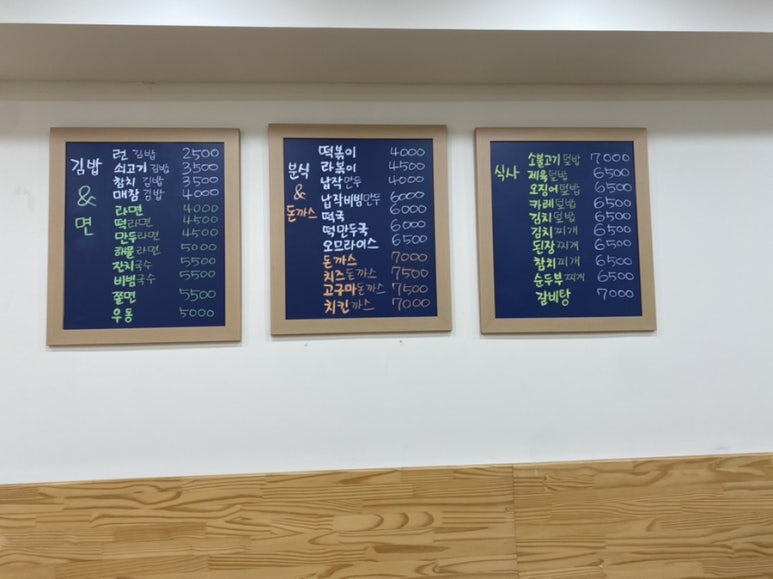 김밥
&
면
런 김밥 2500
쇠고기 김밥 3500
참치 김밥 3500
매참 김밥 4000
라면 4000
떡라면 4500
만두라면 4500
해물라면 5000
잔치국수 5500
비빔국수 5500
쫄면 5500
우동 5000
분식
&
돈까스
떡볶이 4000
라볶이 4500
납작만두 4000
납작비빔만두 6000
떡국 6000
떡만두국 6000
오므라이스 6500
돈까스 7000
치즈돈까스 7500
고구마돈까스 7500
치킨까스 7000
식사
소불고기덮밥 7000
제육덮밥 6500
오징어덮밥 6500
카레덮밥 6500
김치덮밥 6500
김치찌개 6500
된장찌개 6500
참치찌개 6500
순두부찌개 6500
갈비탕 7000